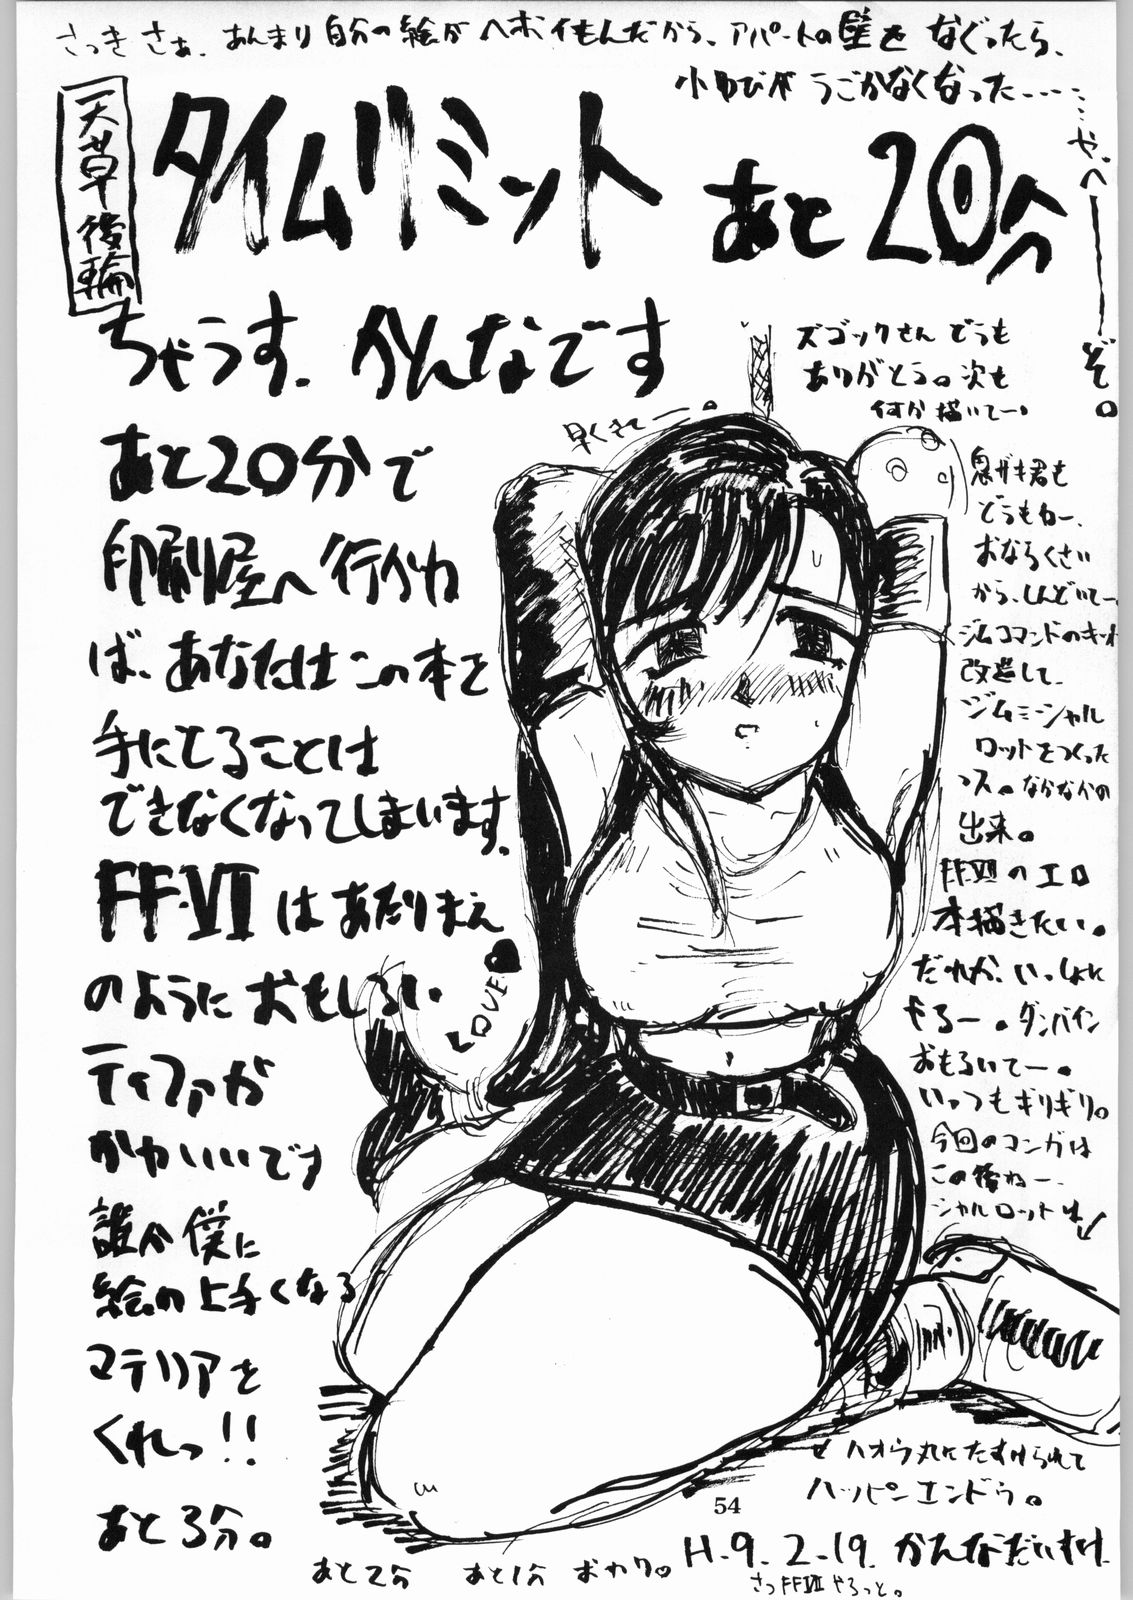 さっきさぁ、あんまり自分の絵がヘボイもんだから、アパートの壁をなぐったら、
小ゆびがうごかなくなった……
やべーーーぞ。
天草後輪
タイムリミット あと20分
ちゃうす、かんなです
あと20分で
印刷屋へ行かね
ば、あなたはこの本を
手にてることは
できなくなってしまいます。
FF.VIIはあたりまえ
のようにおもしろい
ティファが
かわいいです
誰か僕に
絵の上手くなる
マテリアを
くれっ!!
あと3分。
早くきてー。
LOVE
ズゴックさんどうも
ありがとう。次も
何か描いてー。
鬼ガキ君も
どうもねー、
おならくさい
から、しんどいてー、
ジムコマンドのキット
改造して、
ジムミーシャル
ロットをつくった
ッス。なかなかの
出来。
FFVIIのエロ
本描きたい。
だれか、いっしょに
やるー。ダンバイン
おもろいてー。
いっつもギリギリ。
今回のマンガは
この後ねー、
シャルロットは
ハオウ丸にたすけられて
ハッピーエンドゥ。
54
H.9.2.19.かんなだいすけ
あと2分 あと1分 おわり。
さっFFVIIやろっと。